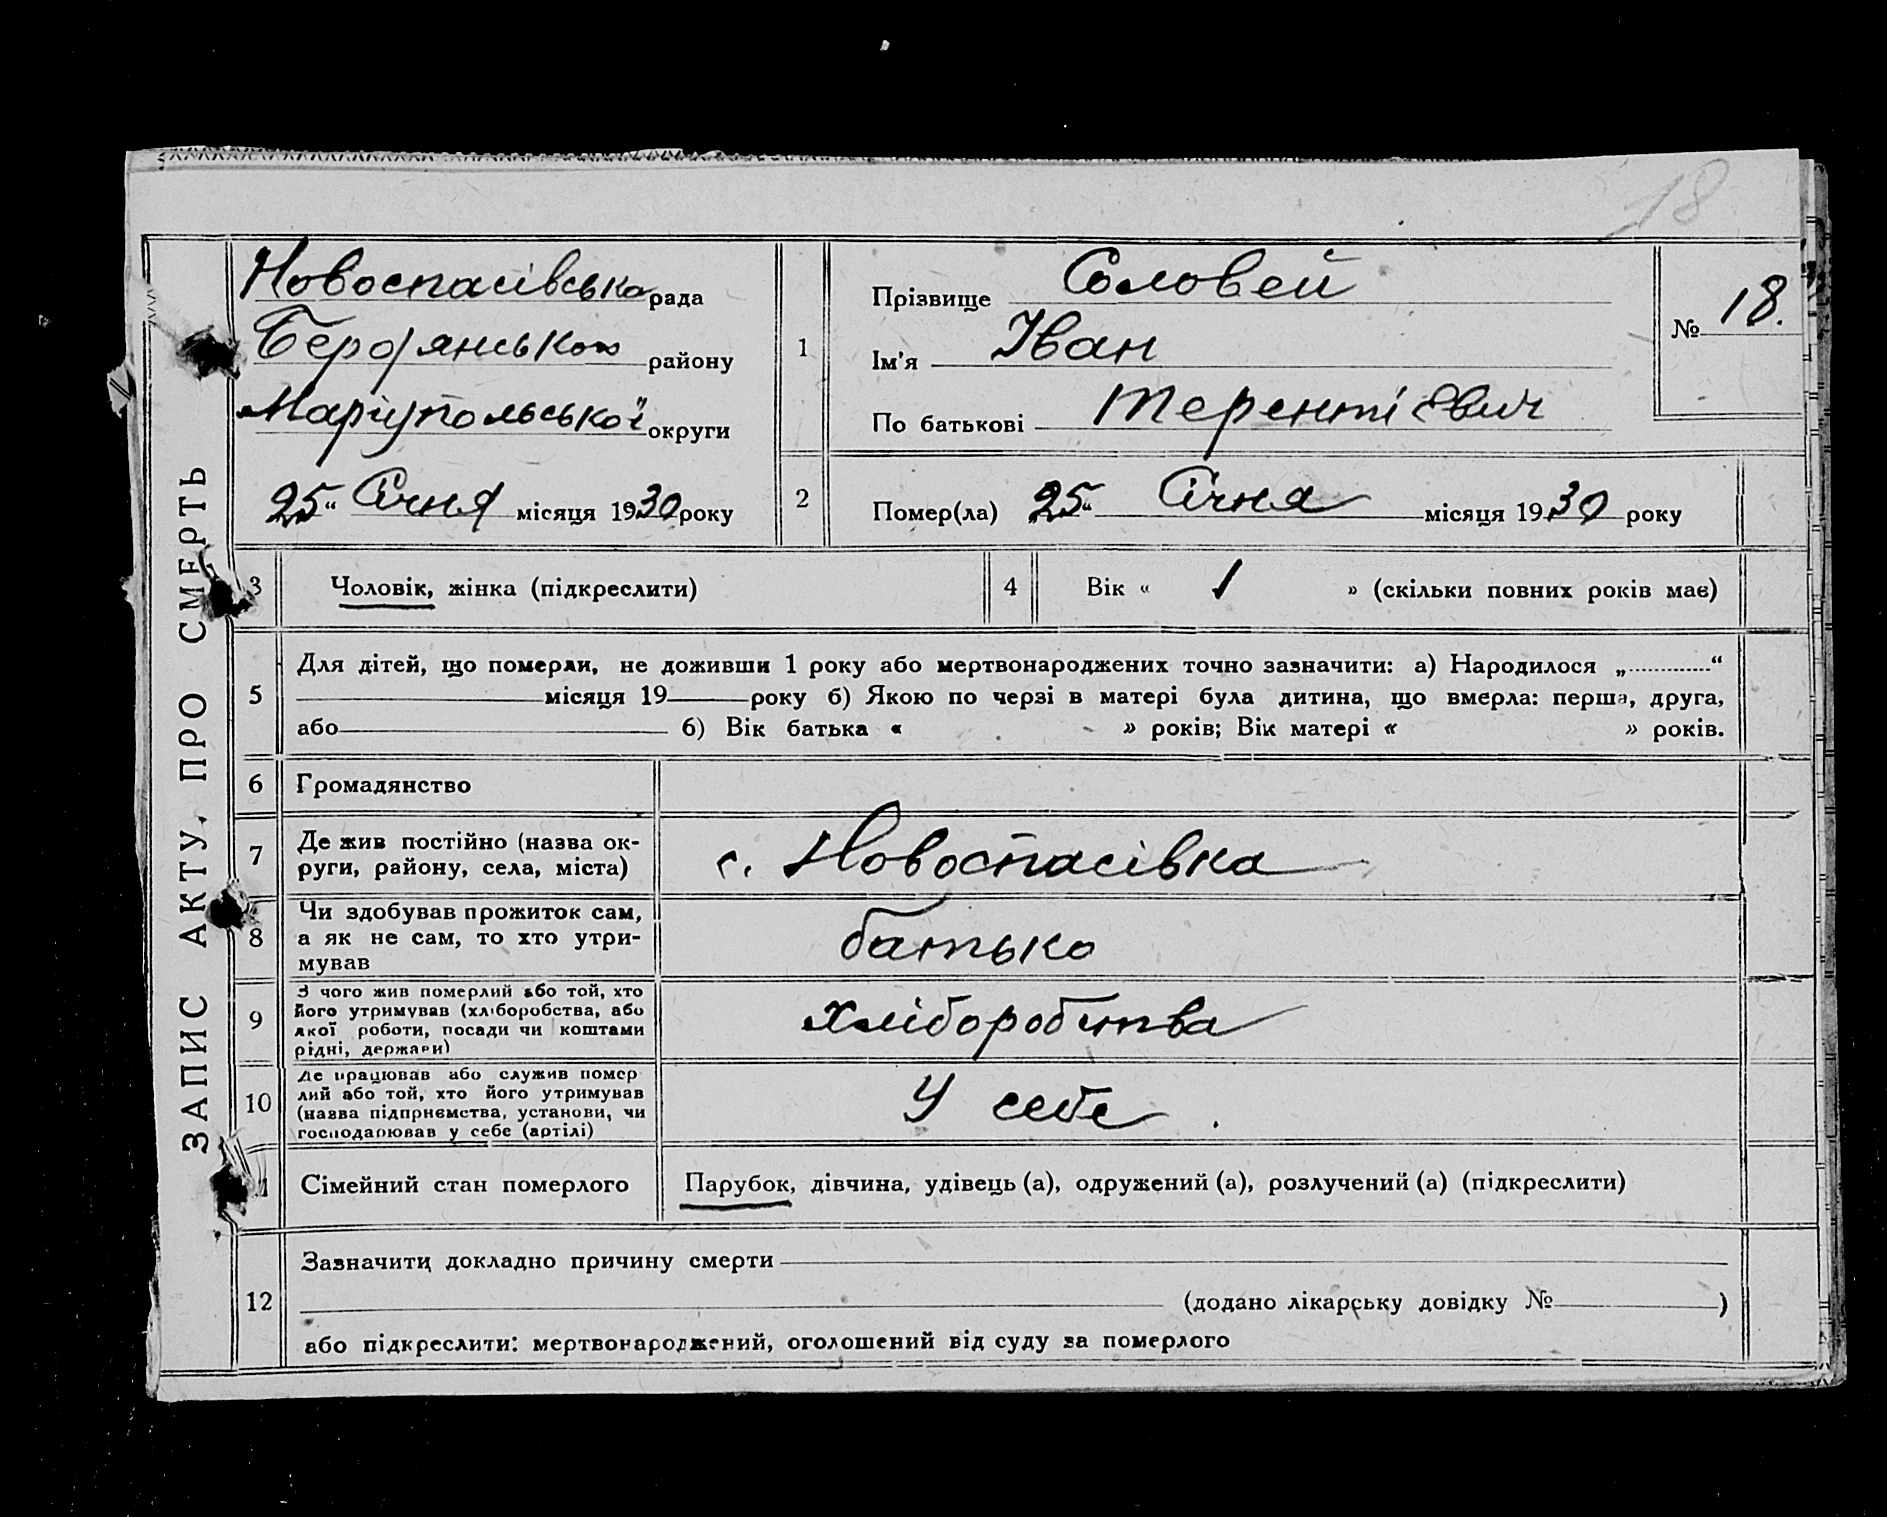 18
ЗАПИС АКТУ ПРО СМЕРТЬ
Новоспасівська рада
Бердянського району
Маріупольської округи
25 “ Січня місяця 1930 року
1
Прізвище Соловей
Ім'я Іван
По батькові Терентієвич
№ 18.
2
Помер(ла) 25 “ Січня місяця 1930 року
3 Чоловік, жінка (підкреслити)
4 Вік « 1 » (скільки повних років має)
5
Для дітей, що померли, не доживши 1 року або мертвонароджених точно зазначити: а) Народилося „ “
місяця 19 року б) Якою по черзі в матері була дитина, що вмерла: перша, друга,
або б) Вік батька « » років; Вік матері « » років.
6 Громадянство
7
Де жив постійно (назва ок-
руги, району, села, міста)
с. Новоспасівка
8
Чи здобував прожиток сам,
а як не сам, то хто утри-
мував
батько
9
З чого жив померлий або той, хто
його утримував (хліборобства, або
якої роботи, посади чи коштами
рідні, держави)
хліборобства
10
Де працював або служив помер
лий або той, хто його утримував
(назва підприємства, установи, чи
господарював у себе (артілі)
У себе.
Сімейний стан померлого Парубок, дівчина, удівець (а), одружений (а), розлучений (а) (підкреслити)
12
Зазначити докладно причину смерти
(додано лікарську довідку № )
або підкреслити: мертвонароджений, оголошений від суду за померлого